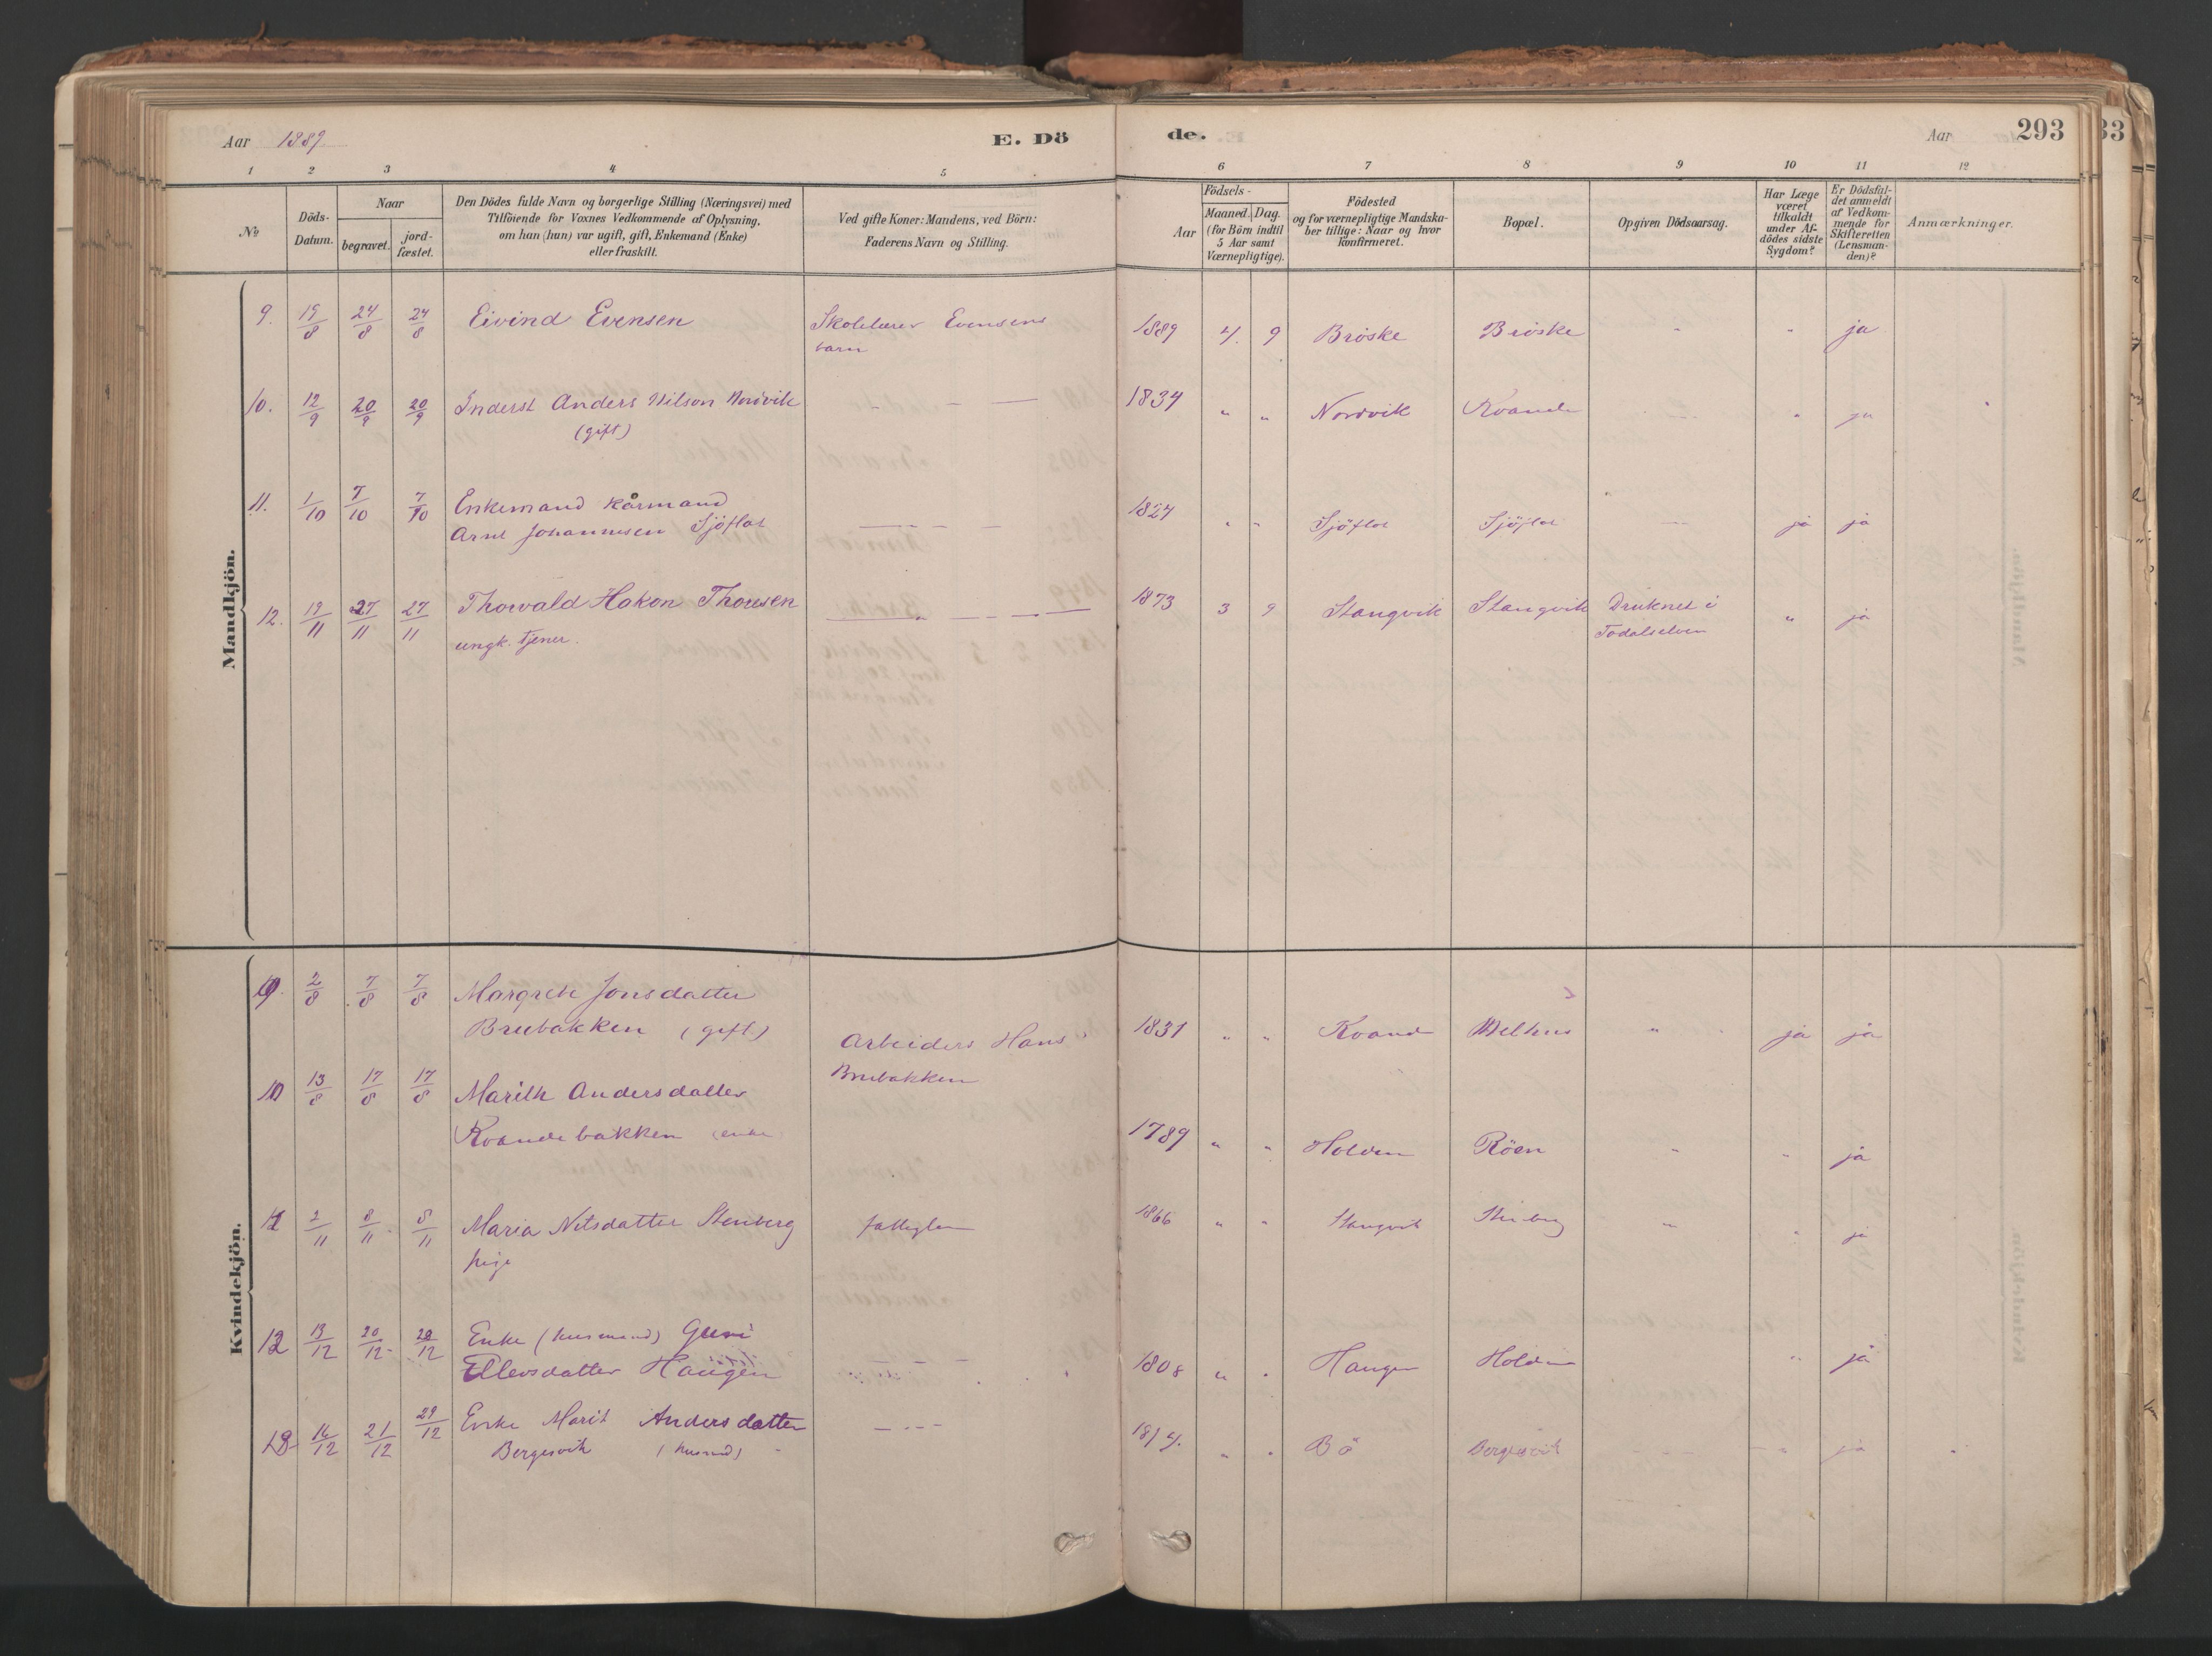 Aar 1889 E. Dö de. Aar 293
1 2 3 4 5 6 7 8 9 10 11 12
No
Döds-Datum.
Naar
begravet.
jord-fæstet.
Den Dödes fulde Navn og borgerlige Stilling (Næringsvei) med
Tilföiende for Voxnes Vedkommende af Oplysning,
om han (hun) var ugift, gift, Enkemand (Enke)
eller fraskilt.
Ved gifte Koner: Mandens, ved Börn:
Faderens Navn og Stilling.
Aar
Födsels-
Maaned. Dag.
(for Börn indtil
5 Aar samt
Værnepligtige).
Födested
og for værnepligtige Mandska-
ber tillige: Naar og hvor
Konfirmeret.
Bopæl.
Opgiven Dödsaarsag.
Har Læge
været
tilkaldt
under Af-
dödes sidste
Sygdom?
Er Dödsfal-
det anmeldt
af Vedkom-
mende for
Skifteretten
(Lensman-
den)?
Anmærkninger.
Mandkjön.
9. 19/8 24/8 24/8 Eivind Evensen Skolelærer Evensens 1889 4. 9 Bröske Bröske - " ja
barn
10. 12/9 20/9 20/9 Inderst Anders Nilson Nordvik - - — 1834 " " Nordvik Kvande — " ja
(gift)
11. 1/10 7/10 7/10 Enkemand kårmand 1824 " " Sjöflot Sjöflot — ja ja
Arnt Johannesen Sjöflot
12. 19/11 27/11 27/11 Thorvald Hakon Thorsen 1873 3 9 Stangvik Stangvik Druknet i " ja
ungk. tjener. Todalselven
Kvindekjön.
9. 2/8 7/8 7/8 Margrete Jonsdatter
Brubakken (gift) Arbeiders Hans 1831 " " Kvand Melhus " ja ja
Brubakken
10 13/8 17/8 17/8 Marith Andersdatter
Kvandebakken (enke) 1789 " " Holden Röen " " ja
11 2/11 8/11 8/11 Maria Nilsdatter Stenberg fattiglem 1866 " " Stangvik Stenberg " " ja
pige
12 13/12 20/12 20/12 Enke (husmand) Guri
Ellevsdatter Haugen 1808 " " Haugen Holden " ja
13 16/12 21/12 29/12 Enke Marit Andersdatter - - - 1814. " " Bö Bergesvik - - - " ja
Bergesvik (husmd)